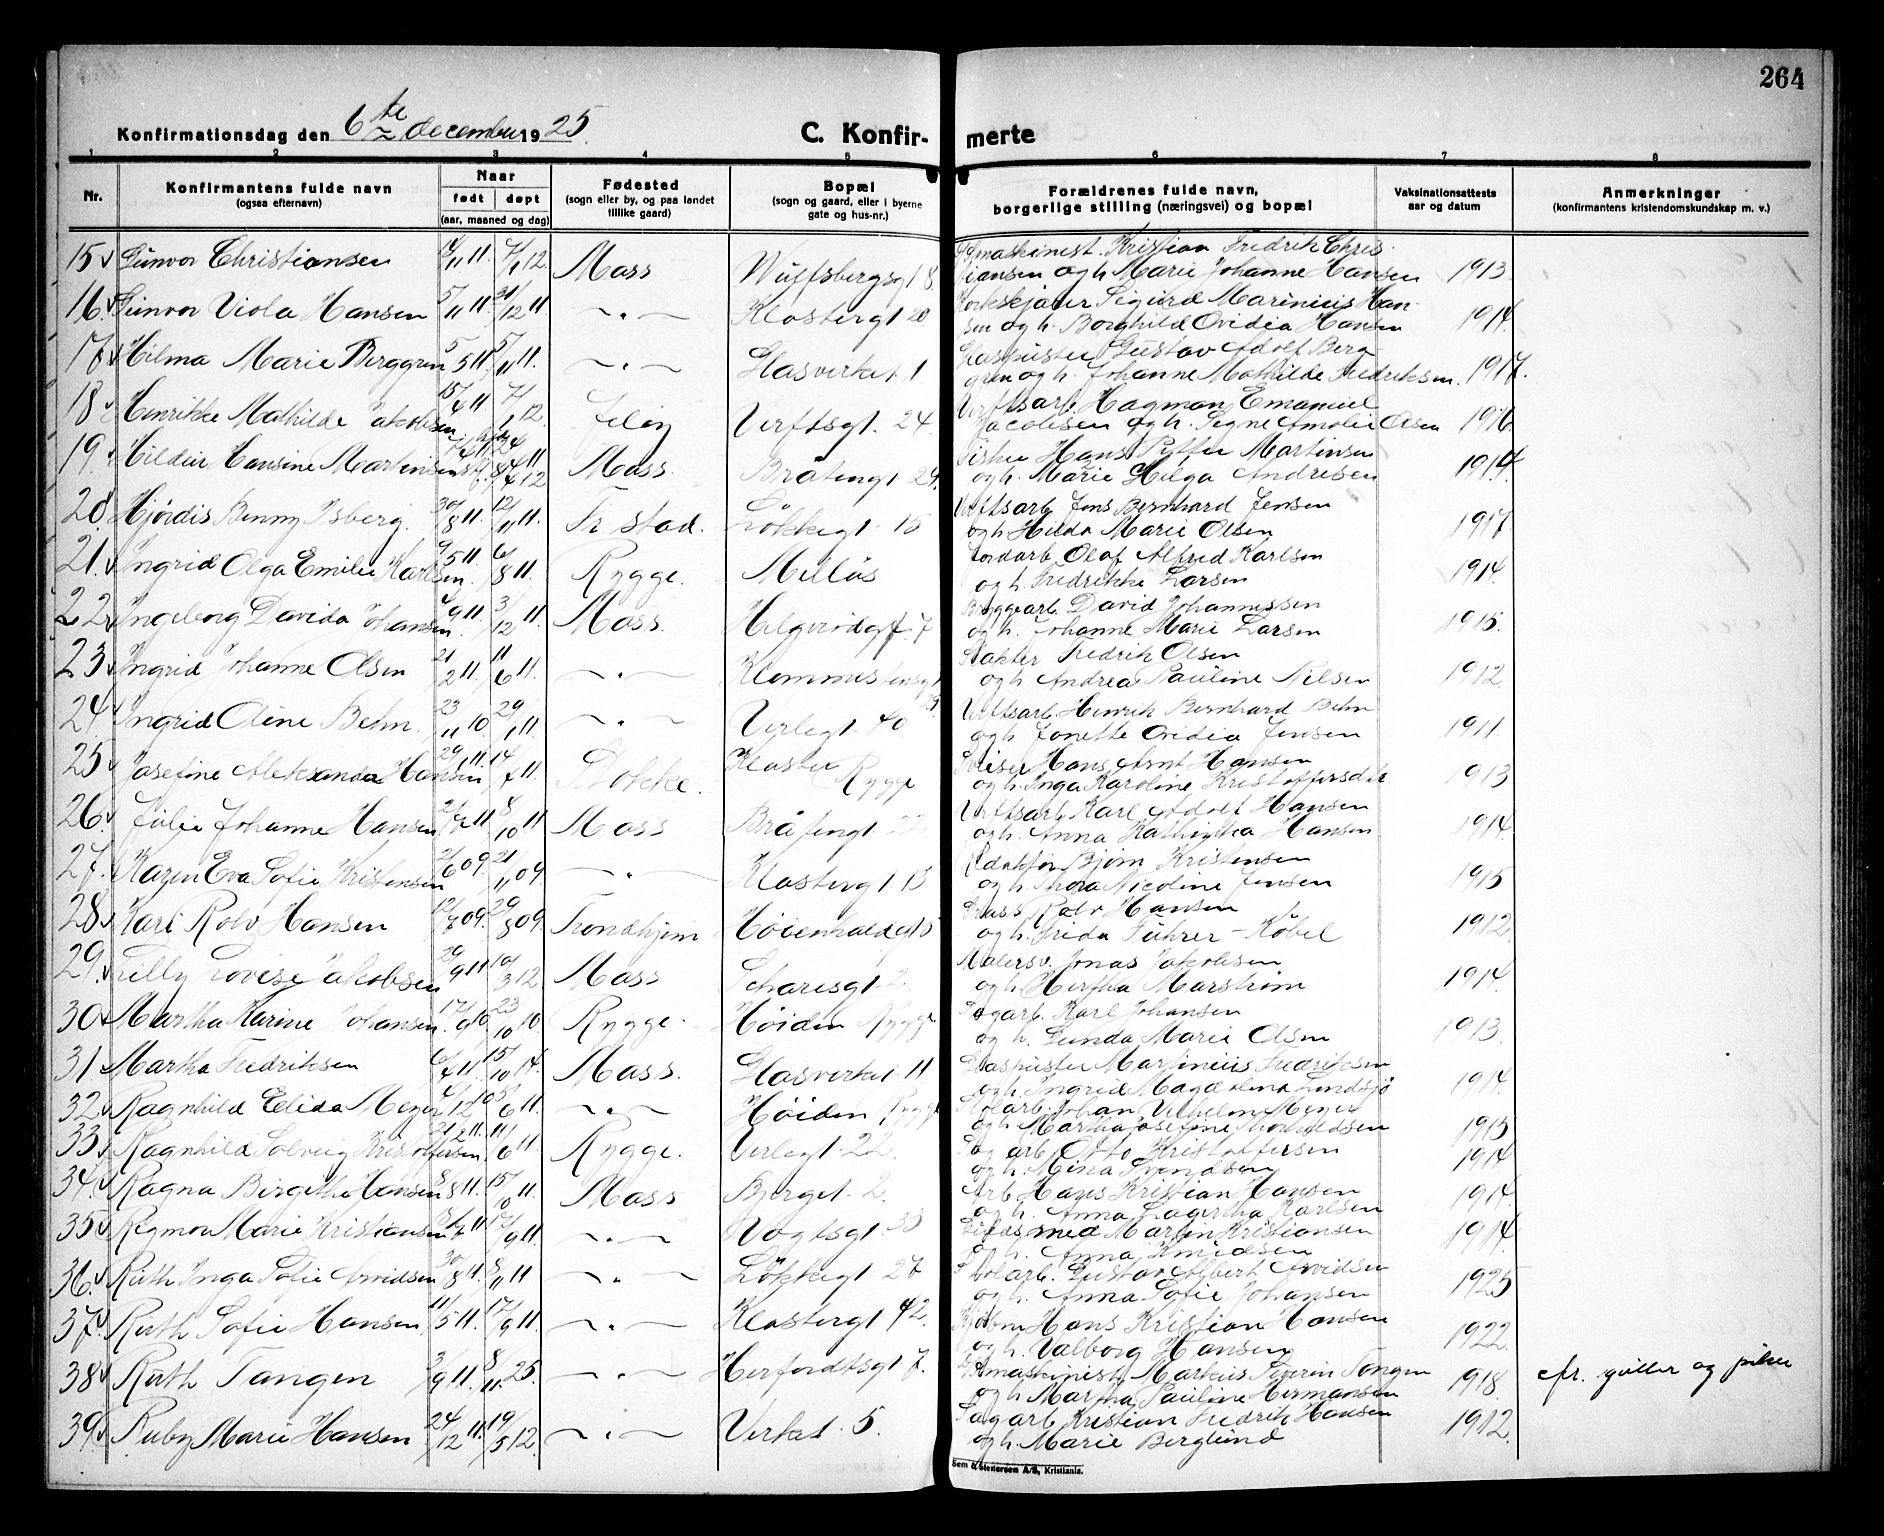 264
Konfirmationsdag den 6te december 1925
C. Konfir- merte
1 2 3 4 5 6 7 8
Nr. Konfirmantens fulde navn (ogsaa efternavn) Naar født døpt (aar, maaned og dag) Fødested (sogn eller by, og paa landet tillike gaard) Bopæl (sogn og gaard, eller i byerne gate og hus-nr.) Forældrenes fulde navn, borgerlige stilling (næringsvei) og bopæl Vaksinationsattests aar og datum Anmerkninger (konfirmantens kristendomskundskap m. v.)
15 Gunvor Christiansen 11 7/1 12 Moss Wulfsbergsgt 8 maskinist Kristian Fredrik Chris-
tiansen og h. Marie Johanne Hansen 1913
16 Gunvor Viola Hansen 5/11 11 31/12 11 — " — Klostergt 20 Sigurd Marinius Han-
sen og h. Borghild Ovidia Hansen 1914
17 Hilma Marie Berggren 5/5 11 5/11 11. — " — Glasverket 1 Glaspuster Gustav Adolf Berg
gren og h. Johanne Mathilde Fredriksen. 1917.
18 Henrikke Mathilde Jakobsen 15/4 11 7/1 12 Jeløy Verftsgt. 24. Verftsarb. Hagman Emanuel
Jacobsen og h. Signe Amalie Olsen 1916
19. Hildur Hansine Martinsen Moss. Bråtengt 24. Fisker Hans Petter Martinsen
og h. Marie Helga Andresen 1914
20 Hjørdis Benny Isberg. 30/8 11. 12/11 11. Fr stad. Løkkegt 15 Verftsarb Jens Bernhard Jensen
og h Hilda Marie Olsen 1917
21. Ingrid Olga Emilie Karlsen. 9/5 11 6/8 11. Rygge. Melløs Jordarb Olaf Alfred Karlsen
og h. Fredrikke Larsen 1914.
22 Ingeborg Davida Johansen 9 11. 3/12 11 Moss. Helgerødgt. 7 Bryggearb. David Johannessen
og h. Johanne Marie Larsen 1915.
23 Ingrid Johanne Olsen 21/2 11. 11/6 11. — " — Fredrik Olsen
og h Andrea Pauline Nilsen 1912.
24 Ingrid Oline Behn. 23/11 10 29/1 11. — " — Verlegt. 40 Verftsarb Henrik Bernhard Behn
og h Jonette Ovidia Jensen 1911.
25 Josefine Aleksandra Hansen 29/1 11. 14/4 11 Kloster Rygge Sveiser Hans Arnt Hansen
og h. Inga Karoline Kristoffersdtr 1913
26. Julie Johanne Hansen 11 8/10 11 Moss Bråtengt Verftsarb Karl Adolf Hansen
og h. Anna Kathinka Hansen 1914.
27. Karen Eva Sofie Kristensen 2/6 09. 21/11 09. — " — Klostergt 13 Redaktør Bjørn Kristensen
og h Thora Nicoline Jensen 1915
28 Kari Rolv Hansen 12/7 09. 29/8 09 Trondhjem Høienhaldgt 5 Rolv Hansen
og h. Frida Führer-Köbel 1912.
29. Lilly Lovise Jakobsen 29/9 11 10/3 12 Moss Scharesgt. 2. Malersv. Jonas Jakobsen
og h Hertha Marstrøm 1914.
30 Martha Karine Johansen. 17/9 10. 23/10 10 Rygge. Høiden Rygge Sagarb. Karl Johansen
og h. Gunda Marie Olsen 1913.
31. Martha Fredriksen 11. 15/10 14. Moss. Glasverket 11 Glaspuster Martinius Fredriksen
og h Ingrid Magdalena Lindsjö 1914.
32. Ragnhild Elida Meyer 12 10 5/6 11. — " — Høiden, Rygge Stolarb. Johan Vilhelm Meyer
og h. Martha Josefine Thorvaldsen 1915
33 Ragnhild Solveig Kristoffersen. 21/2 11. 11/6 11 Rygge. Verlegt. 22. Sagarb. Otto Kristoffersen
og h. Mina Svendsen 1914
34 Ragna Birgithe Hansen 8 11. 15/10 11. Moss Berget. 2. Arb Hans Kristian Hansen
og h. Anna Lagertha Karlsen 1914
35 Regmor Marie Kristiansen 11 17/9 11. — " — Vogtsgt. 33 smed Martin Kristiansen
og h. Anna Knudsen 1914.
36. Ruth Inga Sofie Arvidsen 30/8 11. 5/11 11 — " — Løkkegt 27 Stolarb. Gustav Albert Arvidsen
og h. Anna Sofie Johansen 1925
37. Ruth Sofie Hansen 11/5 11. 17/9 11. — " — Klostergt 42. Kjøbm Hans Kristian Hansen
og h. Valborg Hansen 1922.
38 Ruth Tangen 3/9 11. 8/11. 25. — " — Herfordtsgt 7. maskinist Markus Severin Tangen
og h Martha Pauline Hermansen 1918. cfr.
39 Ruby Marie Hansen 24/12 11. 19/5 12. — " — Verket. 5. Sagarb Kristian Fredrik Hansen
og h. Marie Berglund 1912.
Sem & Stenersen A/S, Kristiania.